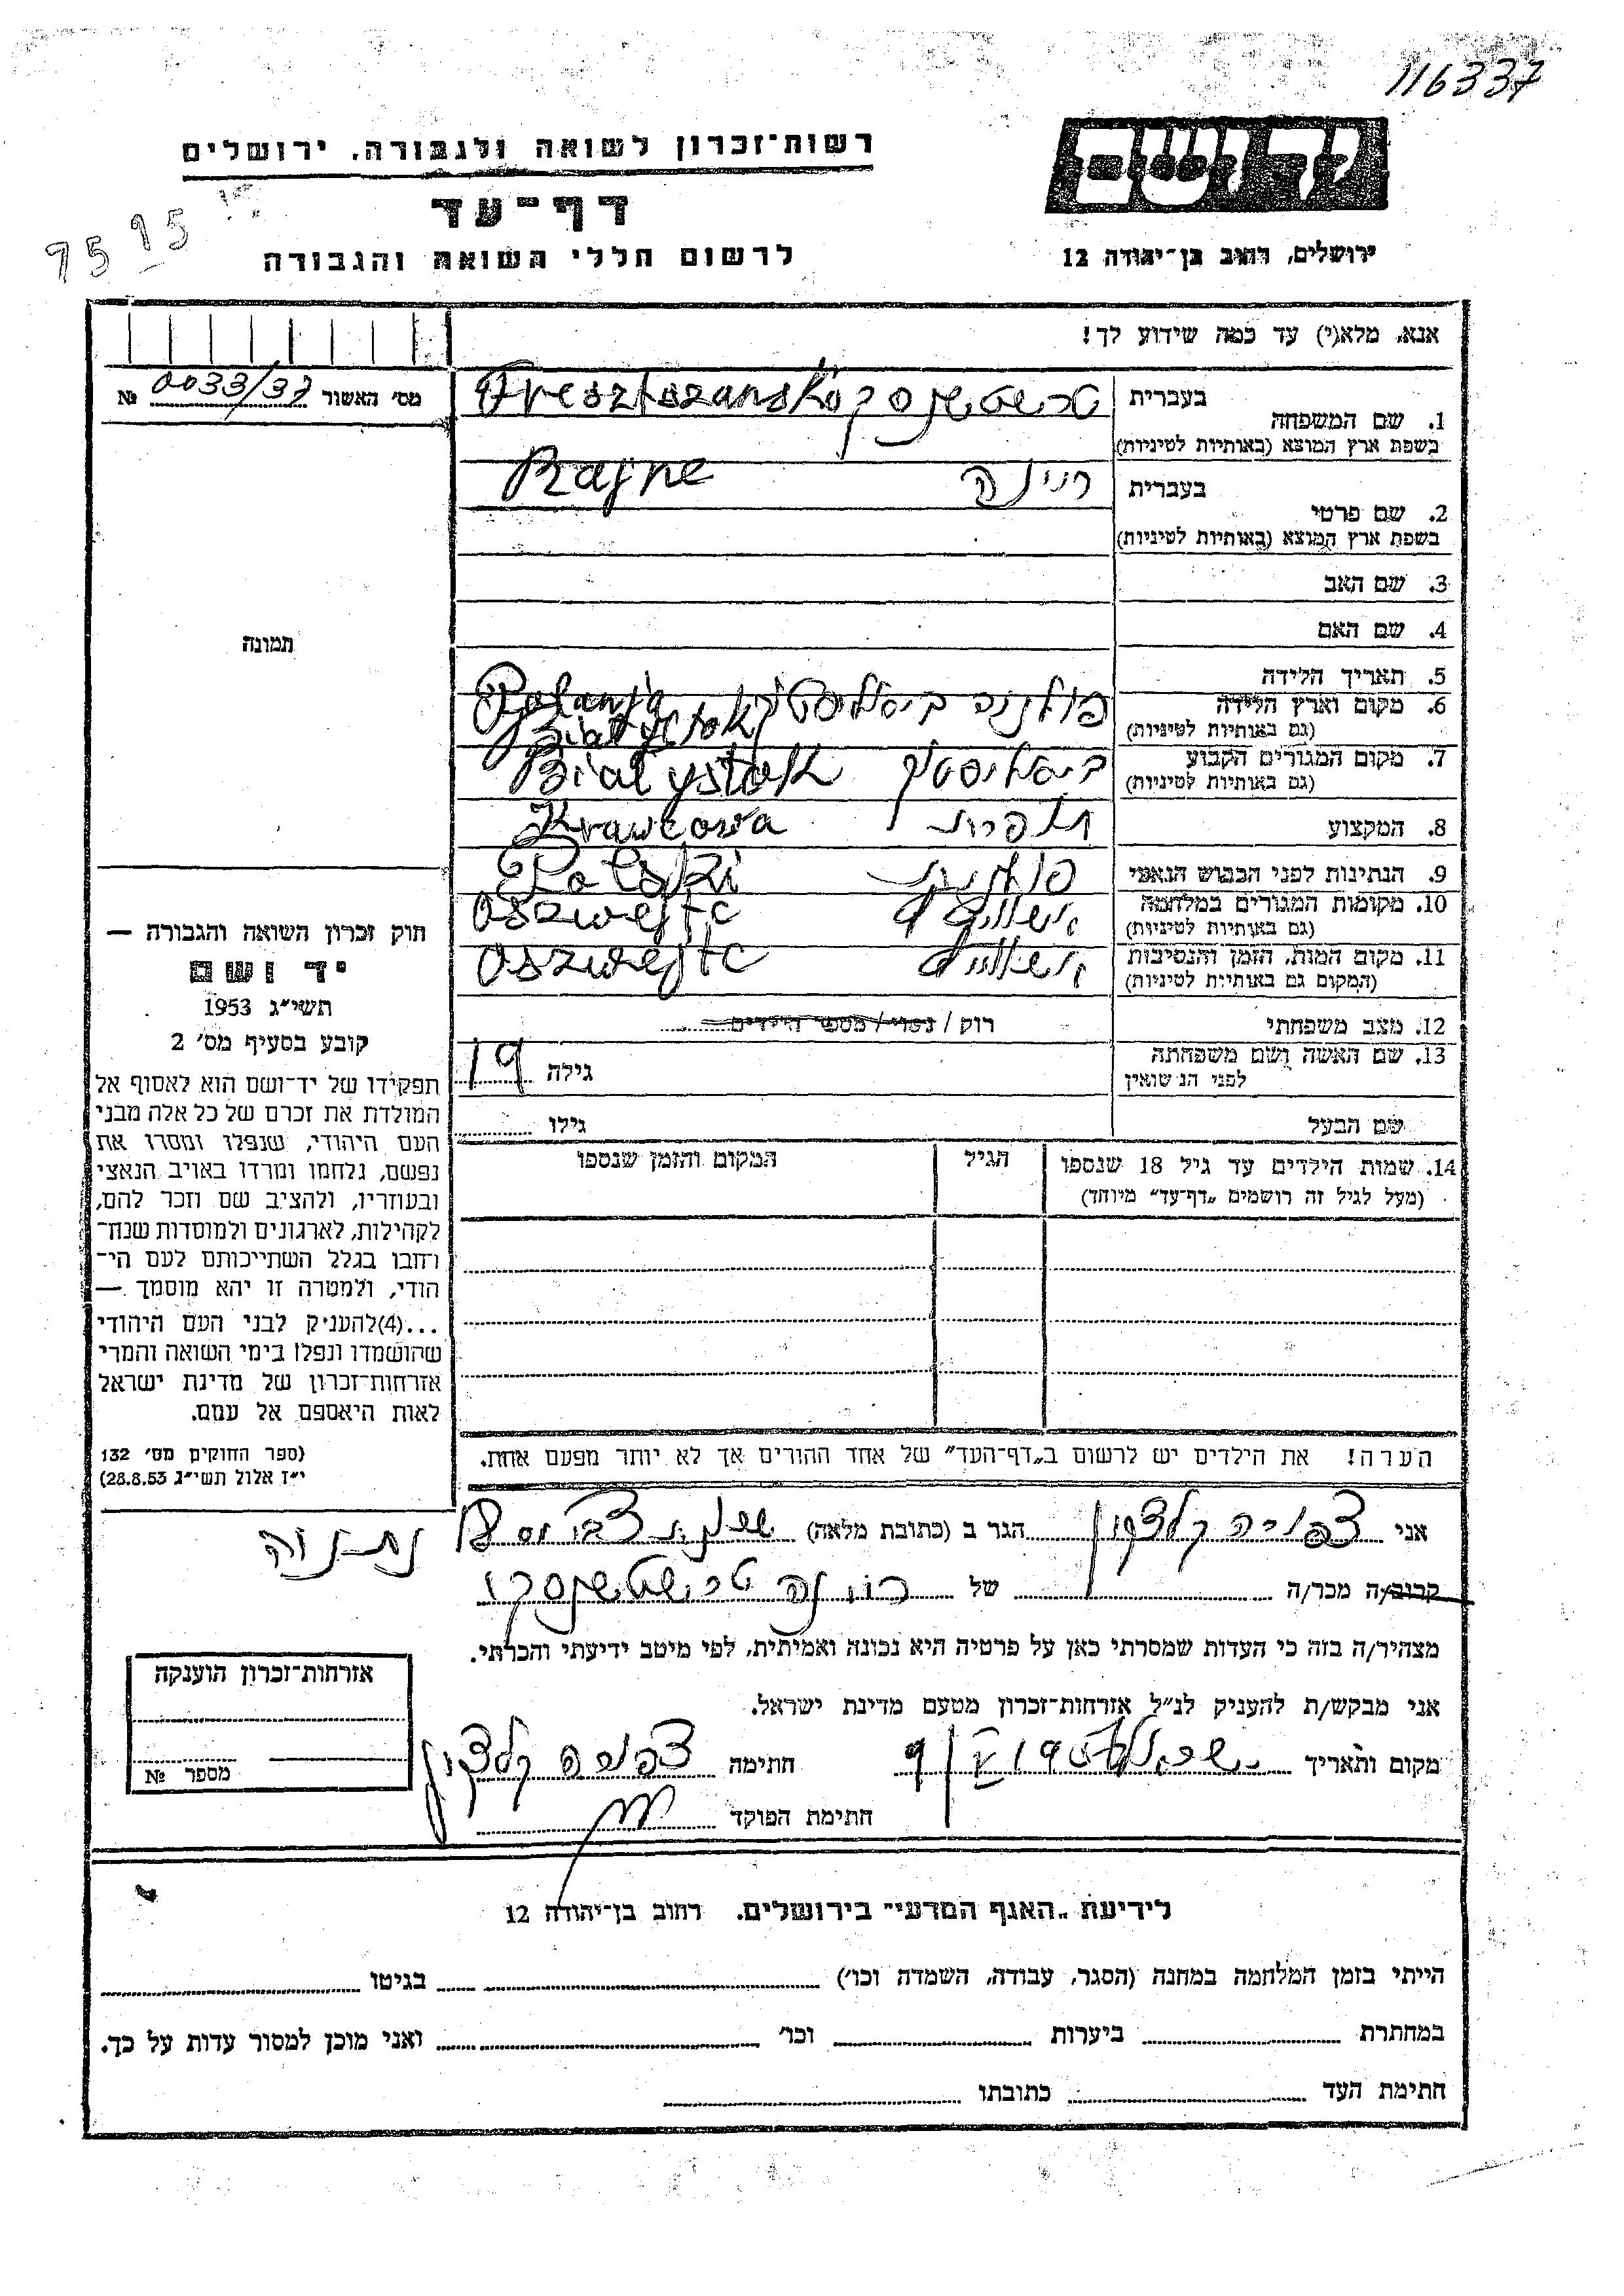 116337
יד ושם
רשות־זכרון לשואה ולגבורה, ירושלים
דף־עד
לרשום חללי השואה והגבורה
ירושלים, רחוב בן־יהודה 12
אנא, מלא(י) עד כמה שידוע לך!
מס׳ האשור 0033/37 №
1. שם המשפחה
בעברית
בשפת ארץ המוצא (באותיות לטיניות)
2. שם פרטי
בעברית רינה Rajne
בשפת ארץ המוצא (באותיות לטיניות)
3. שם האב
4. שם האם
5. תאריך הלידה
6. מקום וארץ הלידה פולניה Polanja Bialystok
(גם באותיות לטיניות)
7. מקום המגורים הקבוע Bialystok
(גם באותיות לטיניות)
8. המקצוע Krawcowa
9. הנתינות לפני הכבוש הנאצי Polski
10. מקומות המגורים במלחמה Oszwejtc
(גם באותיות לטיניות)
11. מקום המות, הזמן והנסיבות Oszwejtc
(המקום גם באותיות לטיניות)
12. מצב משפחתי רוק / נשוי / מספר הילדים
13. שם האשה ושם משפחתה
לפני הנשואין
גילה 19
שם הבעל
גילו
14. שמות הילדים עד גיל 18 שנספו
(מעל לגיל זה רושמים „דף־עד" מיוחד)
הגיל
המקום והזמן שנספו
הערה! את הילדים יש לרשום ב„דף־העד" של אחד ההורים אך לא יותר מפעם אחת.
תמונה
חוק זכרון השואה והגבורה —
יד ושם
תשי״ג 1953
קובע בסעיף מס׳ 2
תפקידו של יד־ושם הוא לאסוף אל
המולדת את זכרם של כל אלה מבני
העם היהודי, שנפלו ומסרו את
נפשם, נלחמו ומרדו באויב הנאצי
ובעוזריו, ולהציב שם וזכר להם,
לקהילות, לארגונים ולמוסדות שנח־
רחבו בגלל השתייכותם לעם הי־
הודי, ולמטרה זו יהא מוסמך —
...(4)להעניק לבני העם היהודי
שהושמדו ונפלו בימי השואה והמרי
אזרחות־זכרון של מדינת ישראל
לאות היאספם אל עמם.
(ספר החוקים מס׳ 132
י״ז אלול תשי״ג 28.8.53)
אני הגר ב (כתובת מלאה) נתניה
קרוב/ה מכר/ה של
מצהיר/ה בזה כי העדות שמסרתי כאן על פרטיה היא נכונה ואמיתית, לפי מיטב ידיעתי והכרתי.
אני מבקש/ת להעניק לנ״ל אזרחות־זכרון מטעם מדינת ישראל.
מקום ותאריך חתימה
חתימת הפוקד
אזרחות־זכרון הוענקה
מספר №
לידיעת „האגף המדעי" בירושלים, רחוב בן־יהודה 12
הייתי בזמן המלחמה במחנה (הסגר, עבודה, השמדה וכו׳) בגיטו
במחתרת ביערות וכו׳ ואני מוכן למסור עדות על כך.
חתימת העד כתובתו